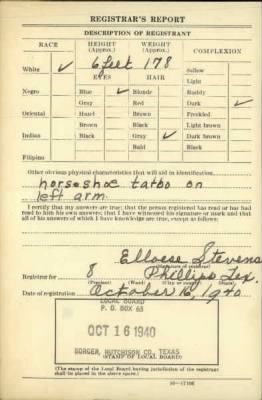 REGISTRAR'S REPORT
DESCRIPTION OF REGISTRANT
RACE HEIGHT (Approx.) WEIGHT (Approx.) COMPLEXION
White ✓ 6 feet 178 Sallow
EYES HAIR Light
Negro Blue ✓ Blonde Ruddy
Gray Red Dark ✓
Oriental Hazel Brown Freckled
Brown Black Light brown
Indian Black Gray ✓ Dark brown
Bald Black
Filipino
Other obvious physical characteristics that will aid in identification
horseshoe tatoo on
left arm
I certify that my answers are true; that the person registered has read or has had
read to him his own answers; that I have witnessed his signature or mark and that
all of his answers of which I have knowledge are true, except as follows:
Elloese Stevens
(Signature of registrar)
Registrar for 8 Phillips Tex.
(Precinct) (Ward) (City or county) (State)
Date of registration October 16, 1940
LOCAL BOARD
P. O. BOX 65
OCT 16 1940
BORGER, HUTCHISON CO, TEXAS
(STAMP OF LOCAL BOARD)
(The stamp of the Local Board having jurisdiction of the registrant
shall be placed in the above space.)